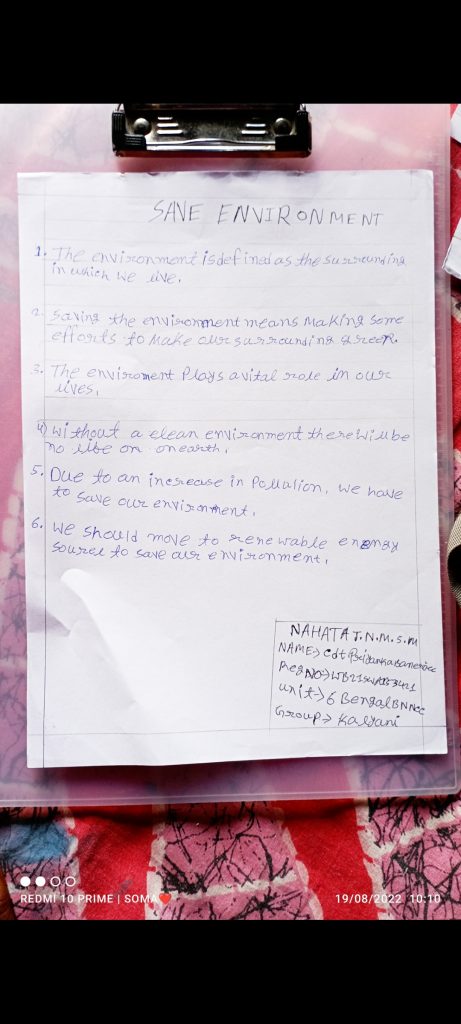 SAVE ENVIRONMENT
1. The environment is defined as the surrounding
in which we live.
2. Saving the environment means making some
efforts to make our surrounding green.
3. The enviroment plays a vital role in our
lives.
4) without a clean environment there will be
no life on on earth.
5. Due to an increase in Pollution, we have
to save our environment.
6. we should move to renewable energy
source to save our environment.
NAHATA J.N.M.S.M
NAME→ Cdt Priyanka Banerjee
Reg NO→
unit→ 6 Bengal BN NCC
Group→ Kalyani
REDMI 10 PRIME | SOMA❤
19/08/2022 10:10